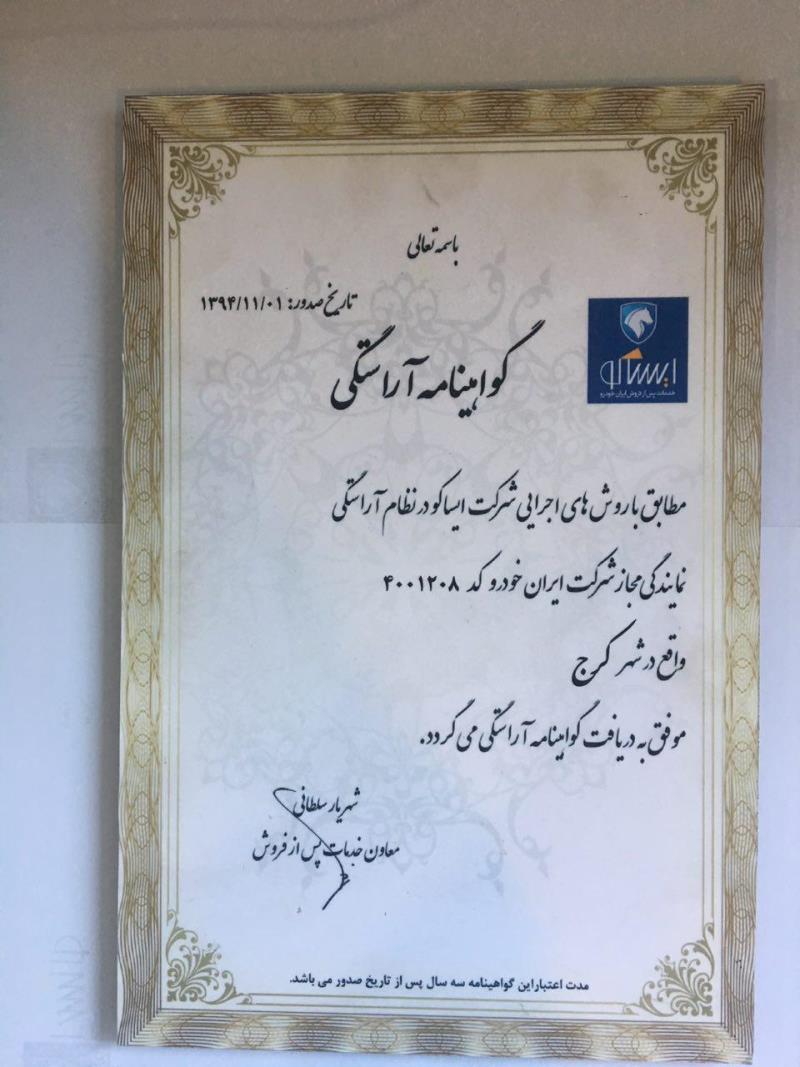 باسمه تعالی
تاریخ صدور: ۱۳۹۴/۱۱/۰۱
ایساکو
خدمات پس از فروش ایران خودرو
گواهینامه آراستگی
مطابق با روش های اجرایی شرکت ایساکو در نظام آراستگی
نمایندگی مجاز شرکت ایران خودرو کد ۴۰۰۱۲۰۸
واقع در شهر کرج
موفق به دریافت گواهینامه آراستگی می گردد.
شهریار سلطانی
معاون خدمات پس از فروش
مدت اعتبار این گواهینامه سه سال پس از تاریخ صدور می باشد.